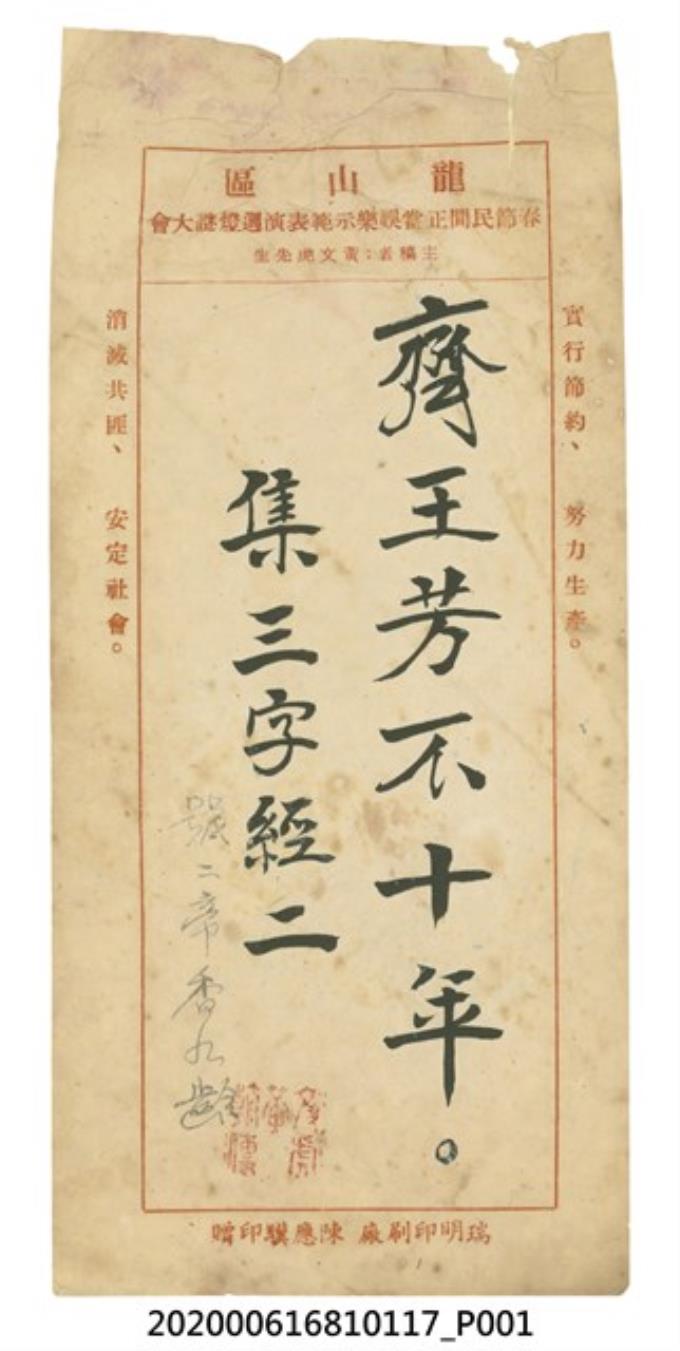 龍山區
春節民間正當娛樂示範表演週燈謎大會
主稿者：黃文虎先生
實行節約、努力生產。
齊王芳不十年。
集三字經二
號二帝香九齡
消滅共匪、安定社會。
瑞明印刷廠 陳應驥印贈
202000616810117_P001